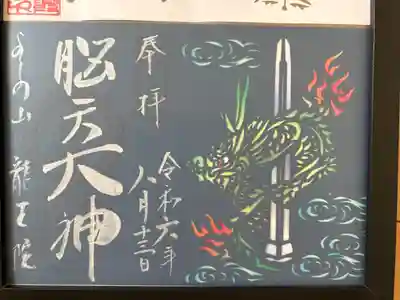 奉拝
令和六年
八月十三日
脳天大神
よしの山 龍王院